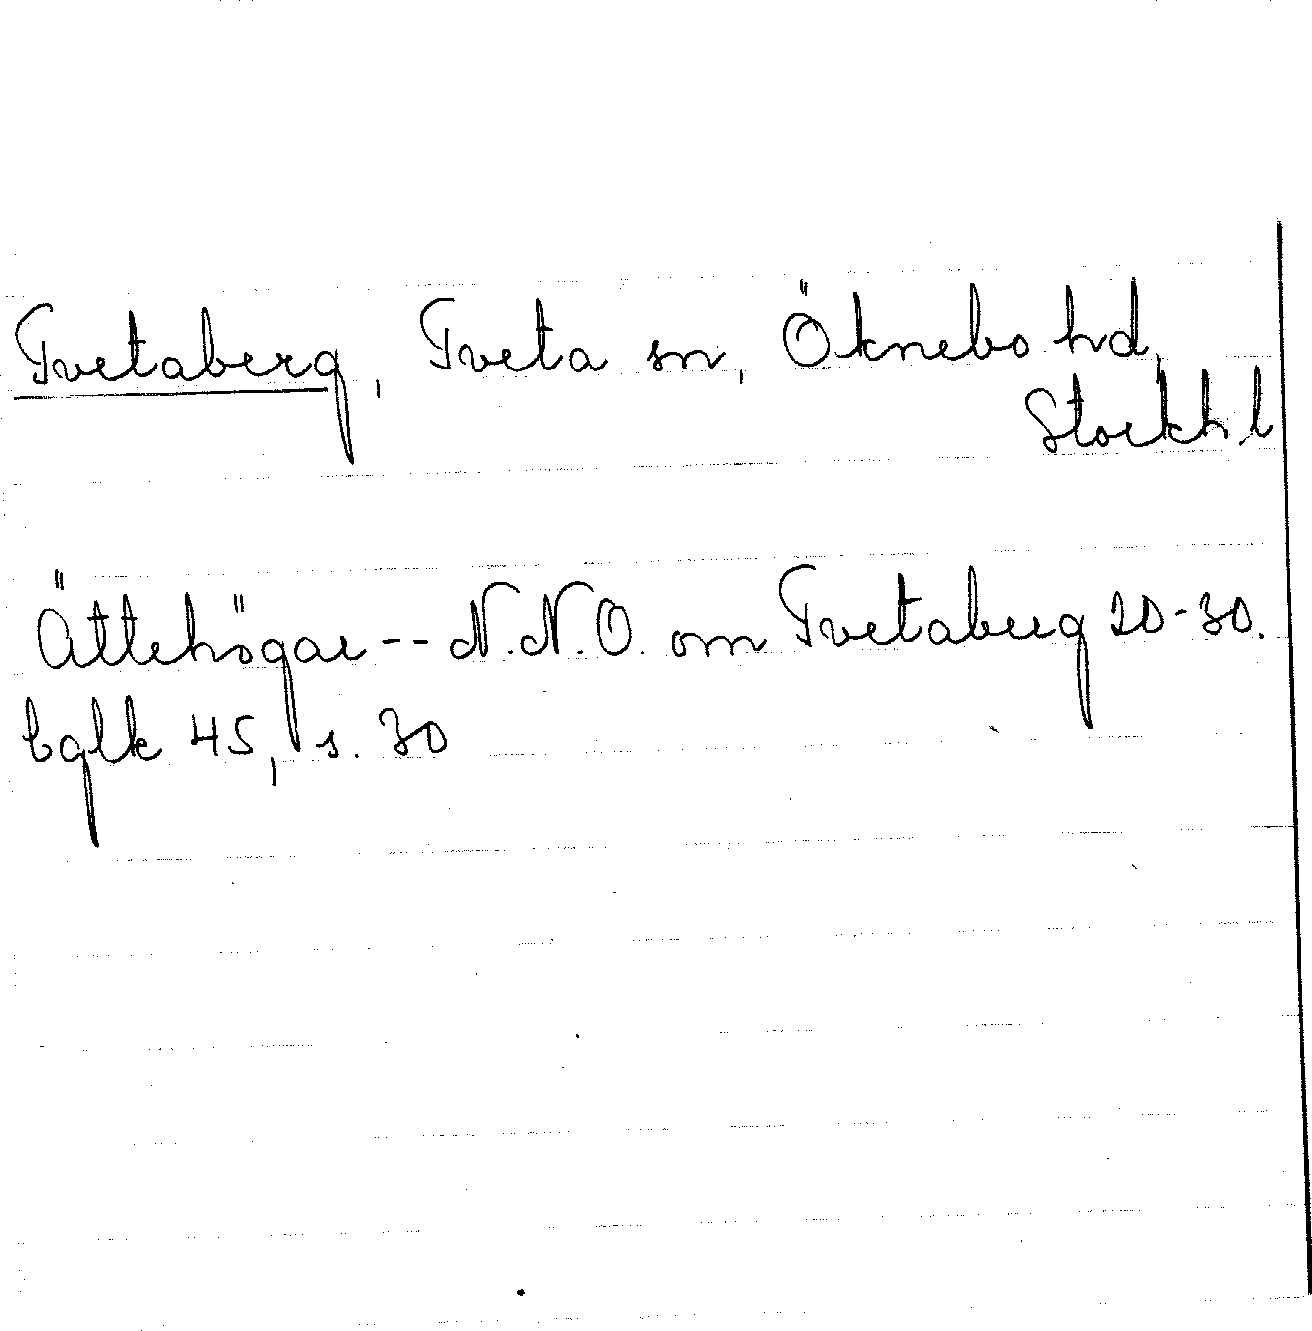 Tvetaberg, Tveta sn, Öknebo hd,
Stockh l
Ättehögar -- N.N.O. om Tvetaberg 20-30.
bglk 45, s. 30